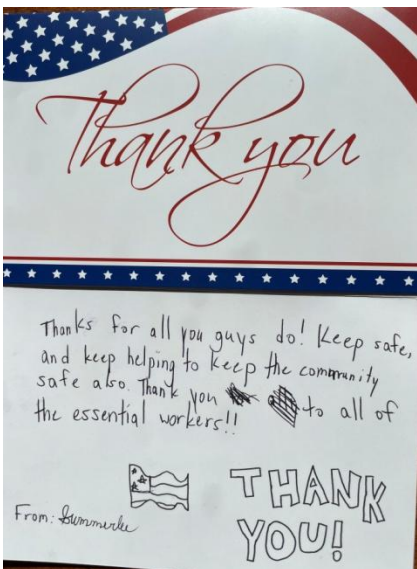 Thank you
Thanks for all you guys do! Keep safe,
and keep helping to keep the community
safe also. Thank you to all of
the essential workers!!
THANK
YOU!
From: Summerlee